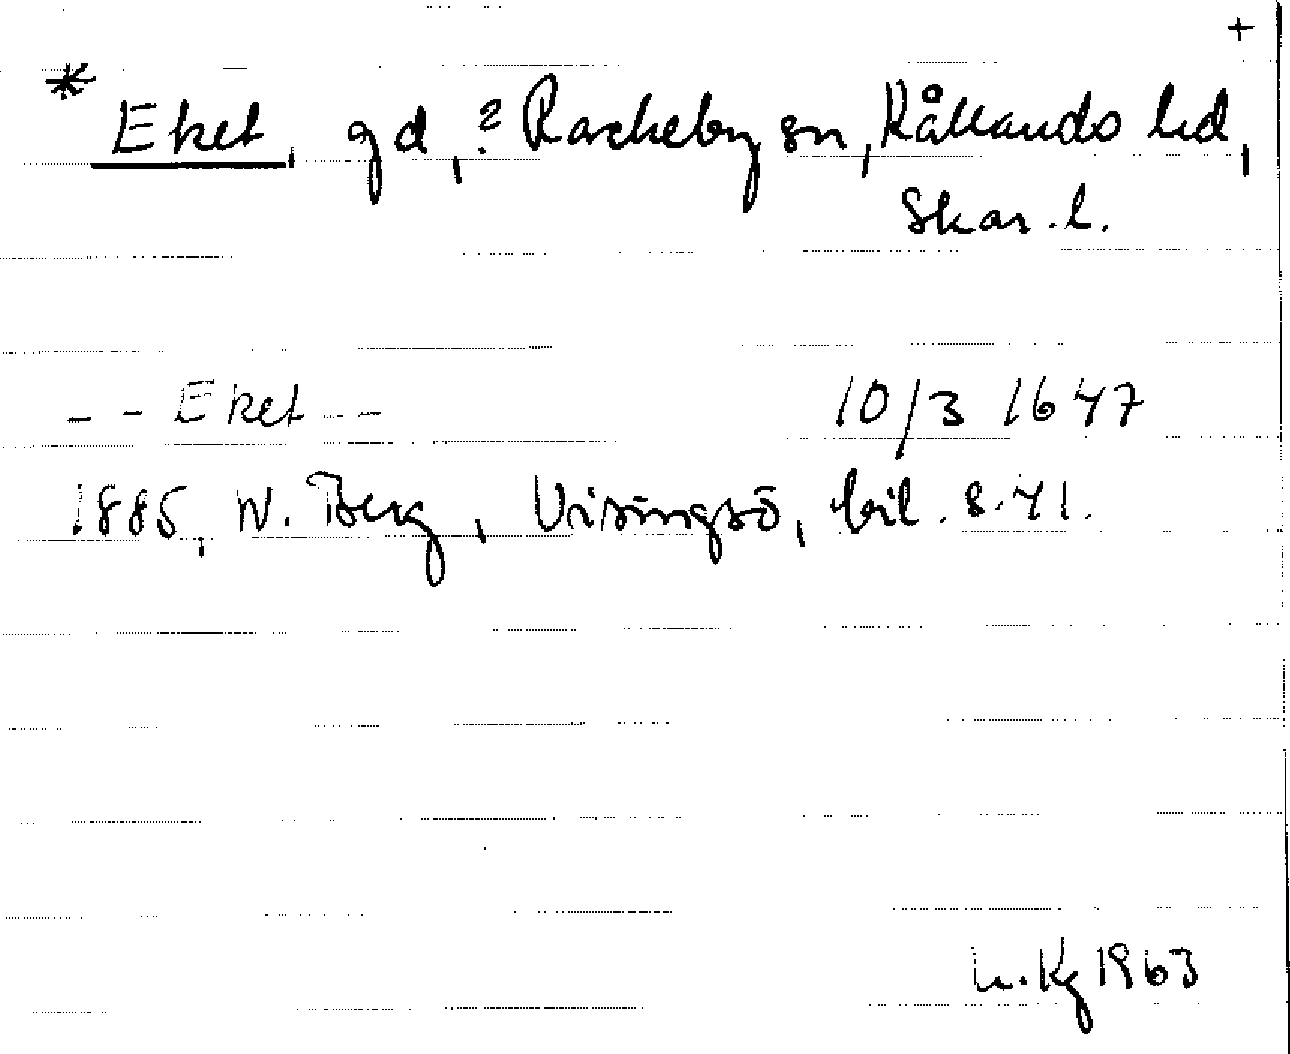 +
* Eket, gd, ? Rackeby sn, Kållands hd,
Skar. l.
-- Eket -- 10/3 1647
1885, W. Berg, Visingsö, bil. s. 41.
h. Kg 1963